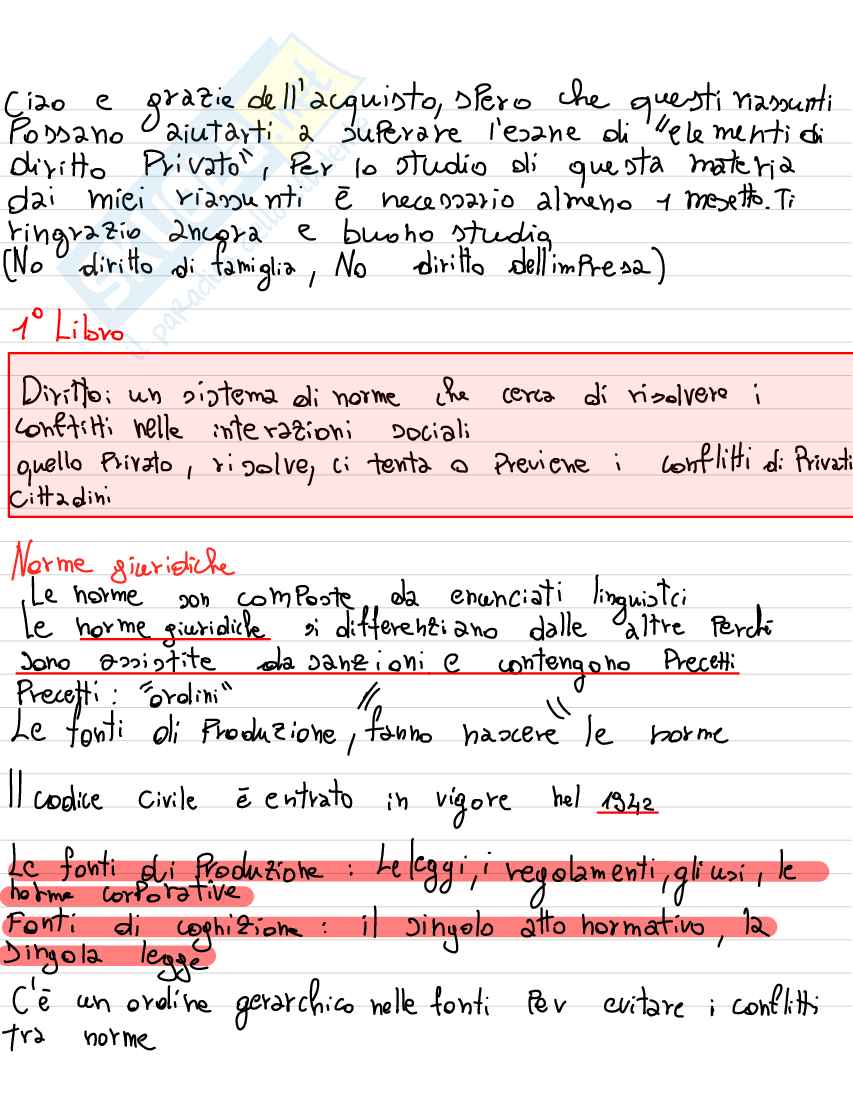 Ciao e grazie dell'acquisto, spero che questi riassunti
Possano aiutarti a superare l'esame di "elementi di
diritto Privato", Per lo studio di questa materia
dai miei riassunti è necessario almeno 1 mesetto. Ti
ringrazio ancora e buono studio
(No diritto di famiglia, No diritto dell'impresa)
SKUOLA.net
il paradiso dello studente
1° Libro
Diritto: un sistema di norme che cerca di risolvere i
conflitti nelle interazioni sociali
quello Privato, risolve, ci tenta o Previene i conflitti di Privati
Cittadini
Norme giuridiche
Le norme son composte da enunciati linguistci
Le norme giuridiche si differenziano dalle altre Perché
sono assistite da sanzioni e contengono Precetti
Precetti: "ordini"
Le fonti di Produzione, "fanno nascere" le norme
Il codice Civile è entrato in vigore nel 1942
Le fonti di Produzione: Le leggi, i regolamenti, gli usi, le
norme corporative
Fonti di cognizione: il singolo atto normativo, la
Singola legge
C'è un ordine gerarchico nelle fonti Per evitare i conflitti
tra norme